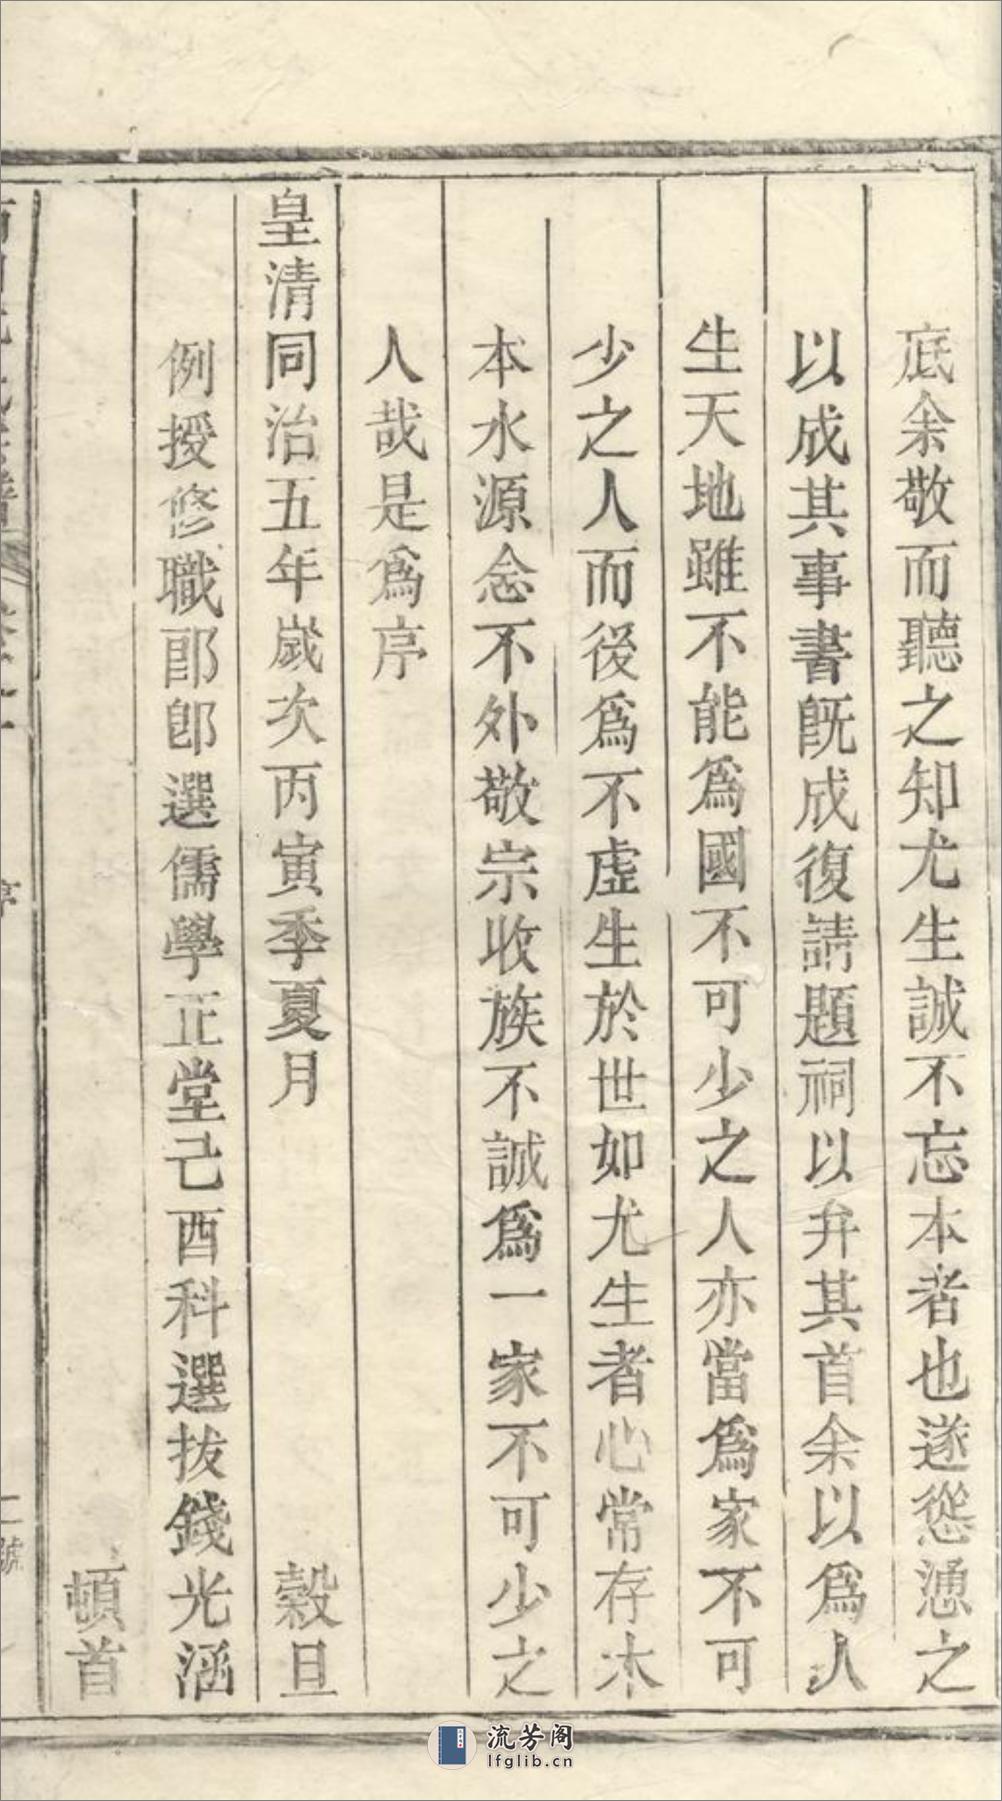 底余敬而聽之知尤生誠不忘本者也遂慫慂之
以成其事書既成復請題祠以弁其首余以為人
生天地雖不能為國不可少之人亦當為家不可
少之人而後為不虛生於世如尤生者心常存木
本水源念不外敬宗收族不誠為一家不可少之
人哉是為序
皇清同治五年歲次丙寅季夏月 穀旦
例授修職郎即選儒學正堂己酉科選拔錢光涵
頓首
序
二號
流芳阁
lfglib.cn